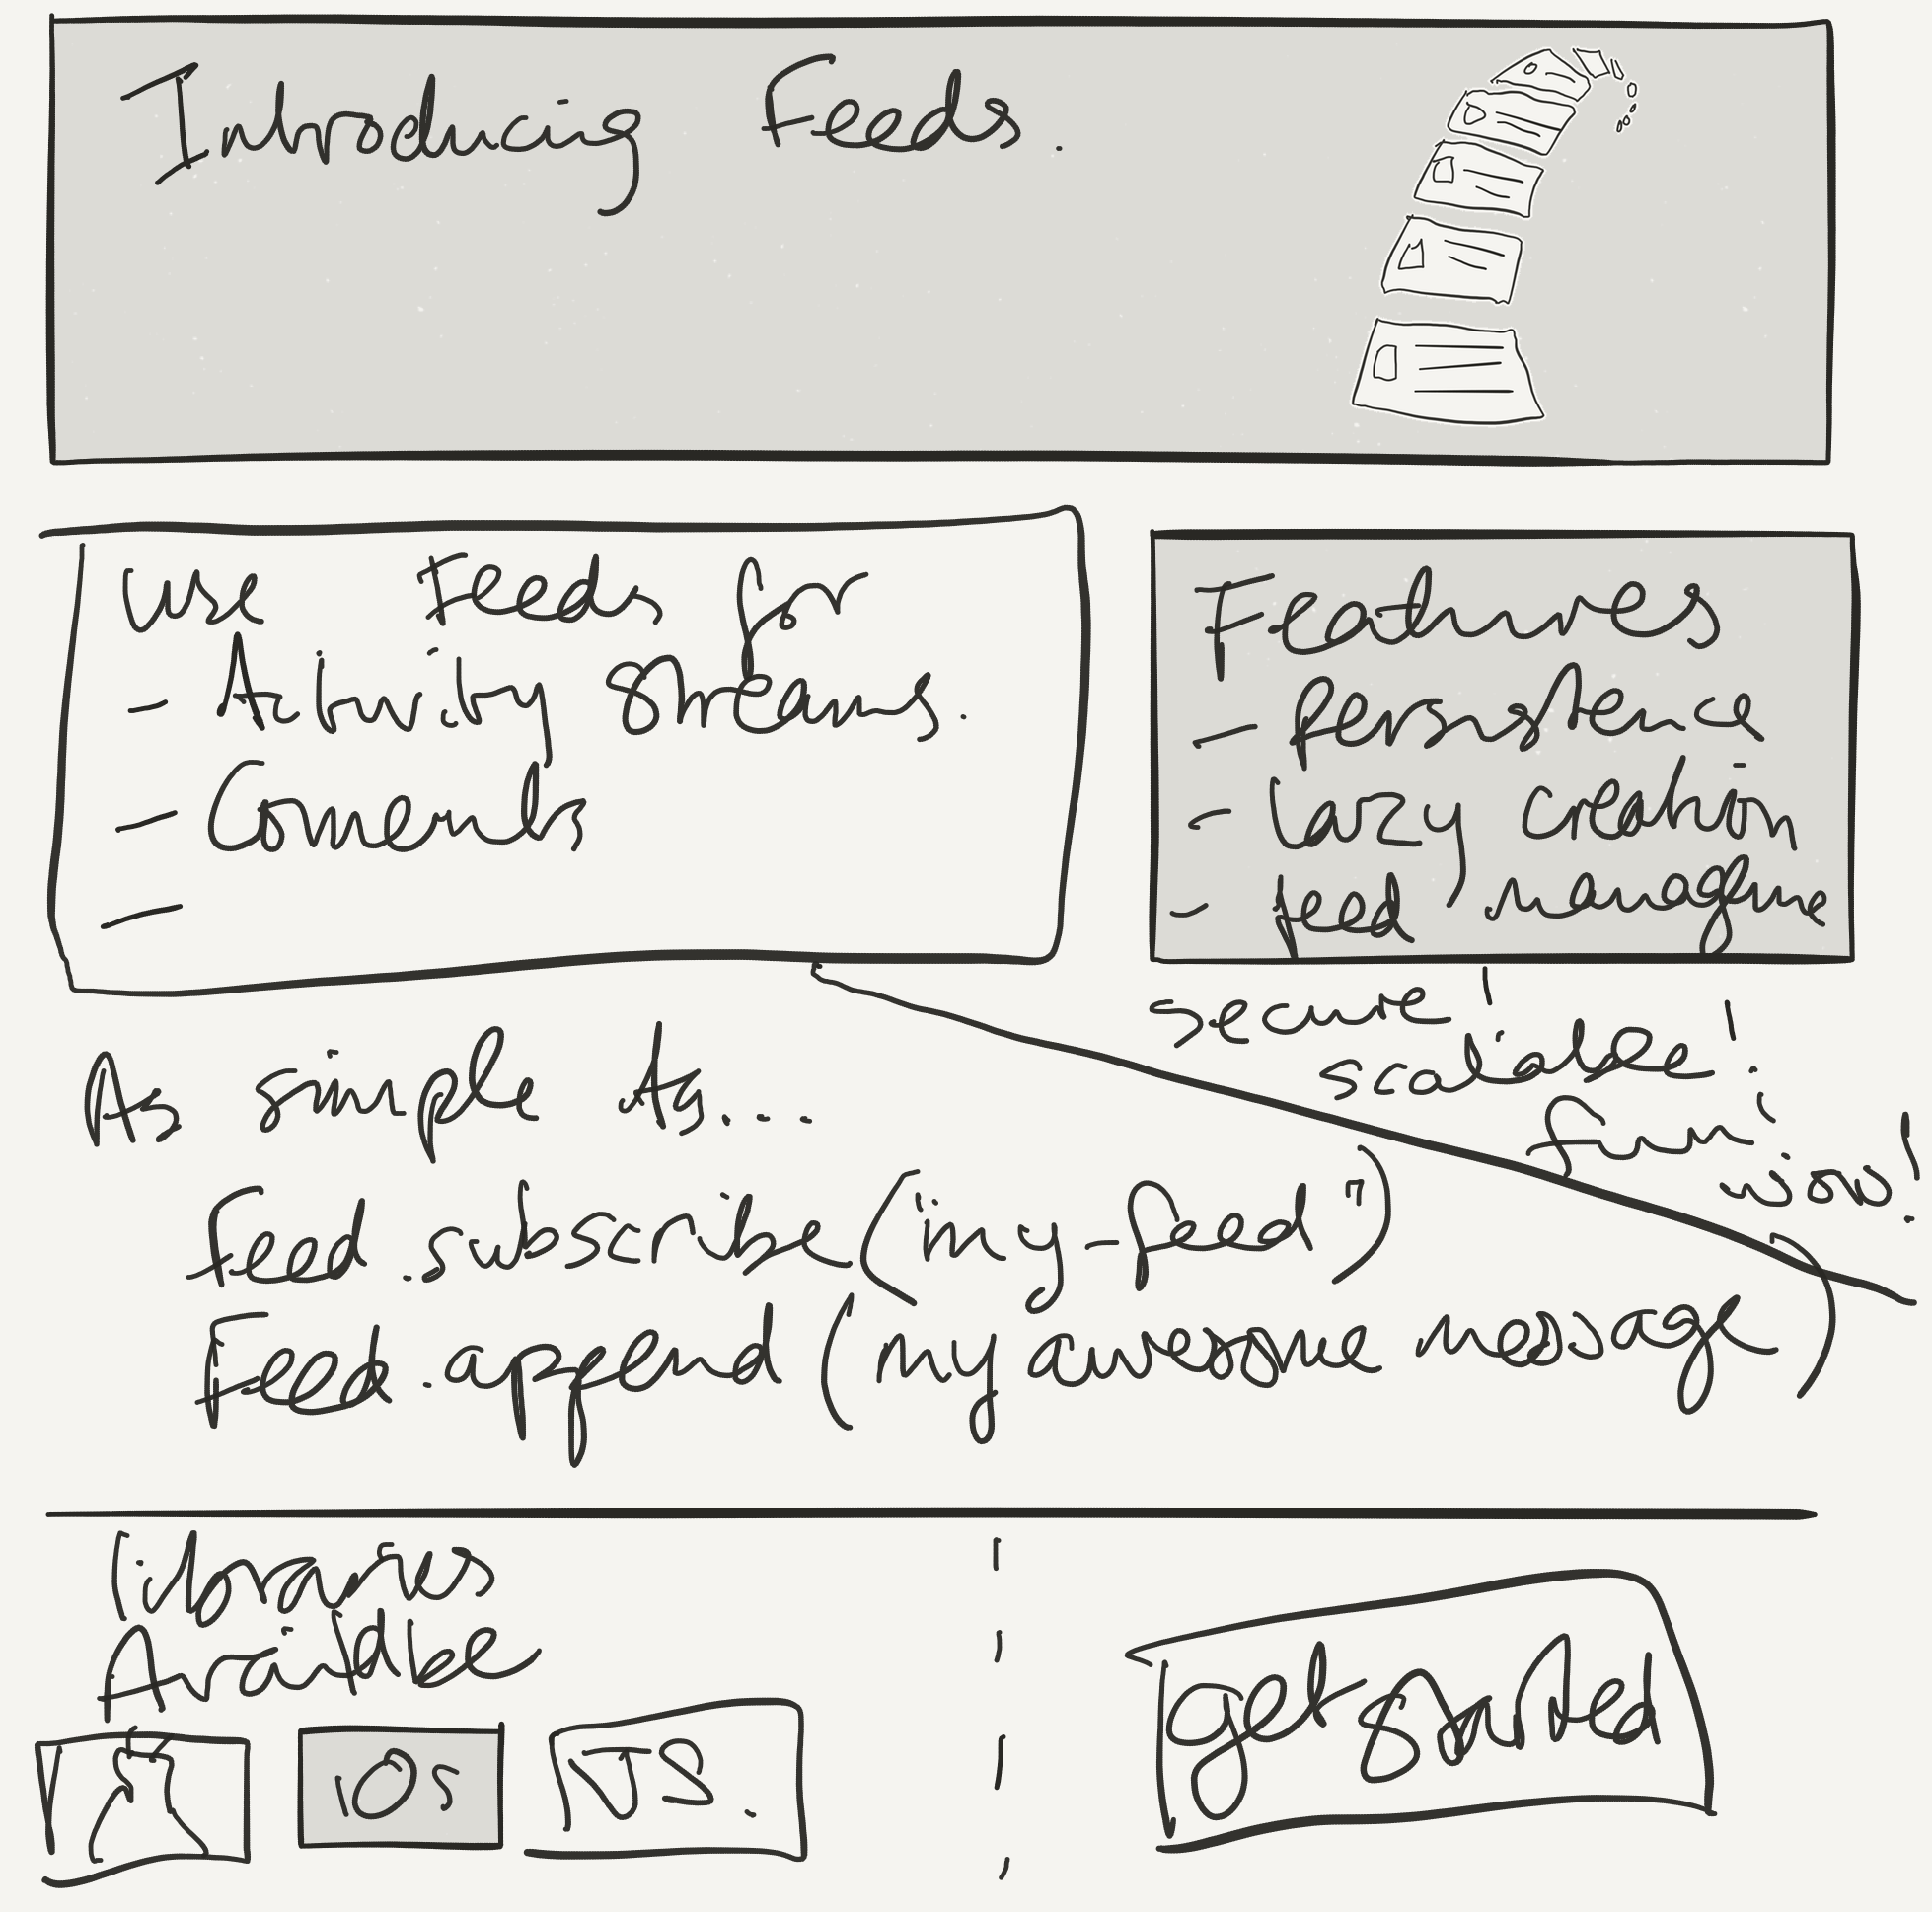 Introducing Feeds.
use Feeds for
- Activity Streams.
- Coments
-
Features
- Persistence
- Lazy creation
- feed manageme
secure!
scalable!
fun!
woo!
As simple As...
Feed.subscribe("my-feed")
Feed.append(my awesome message)
libraries
Available
iOS
JS.
get started